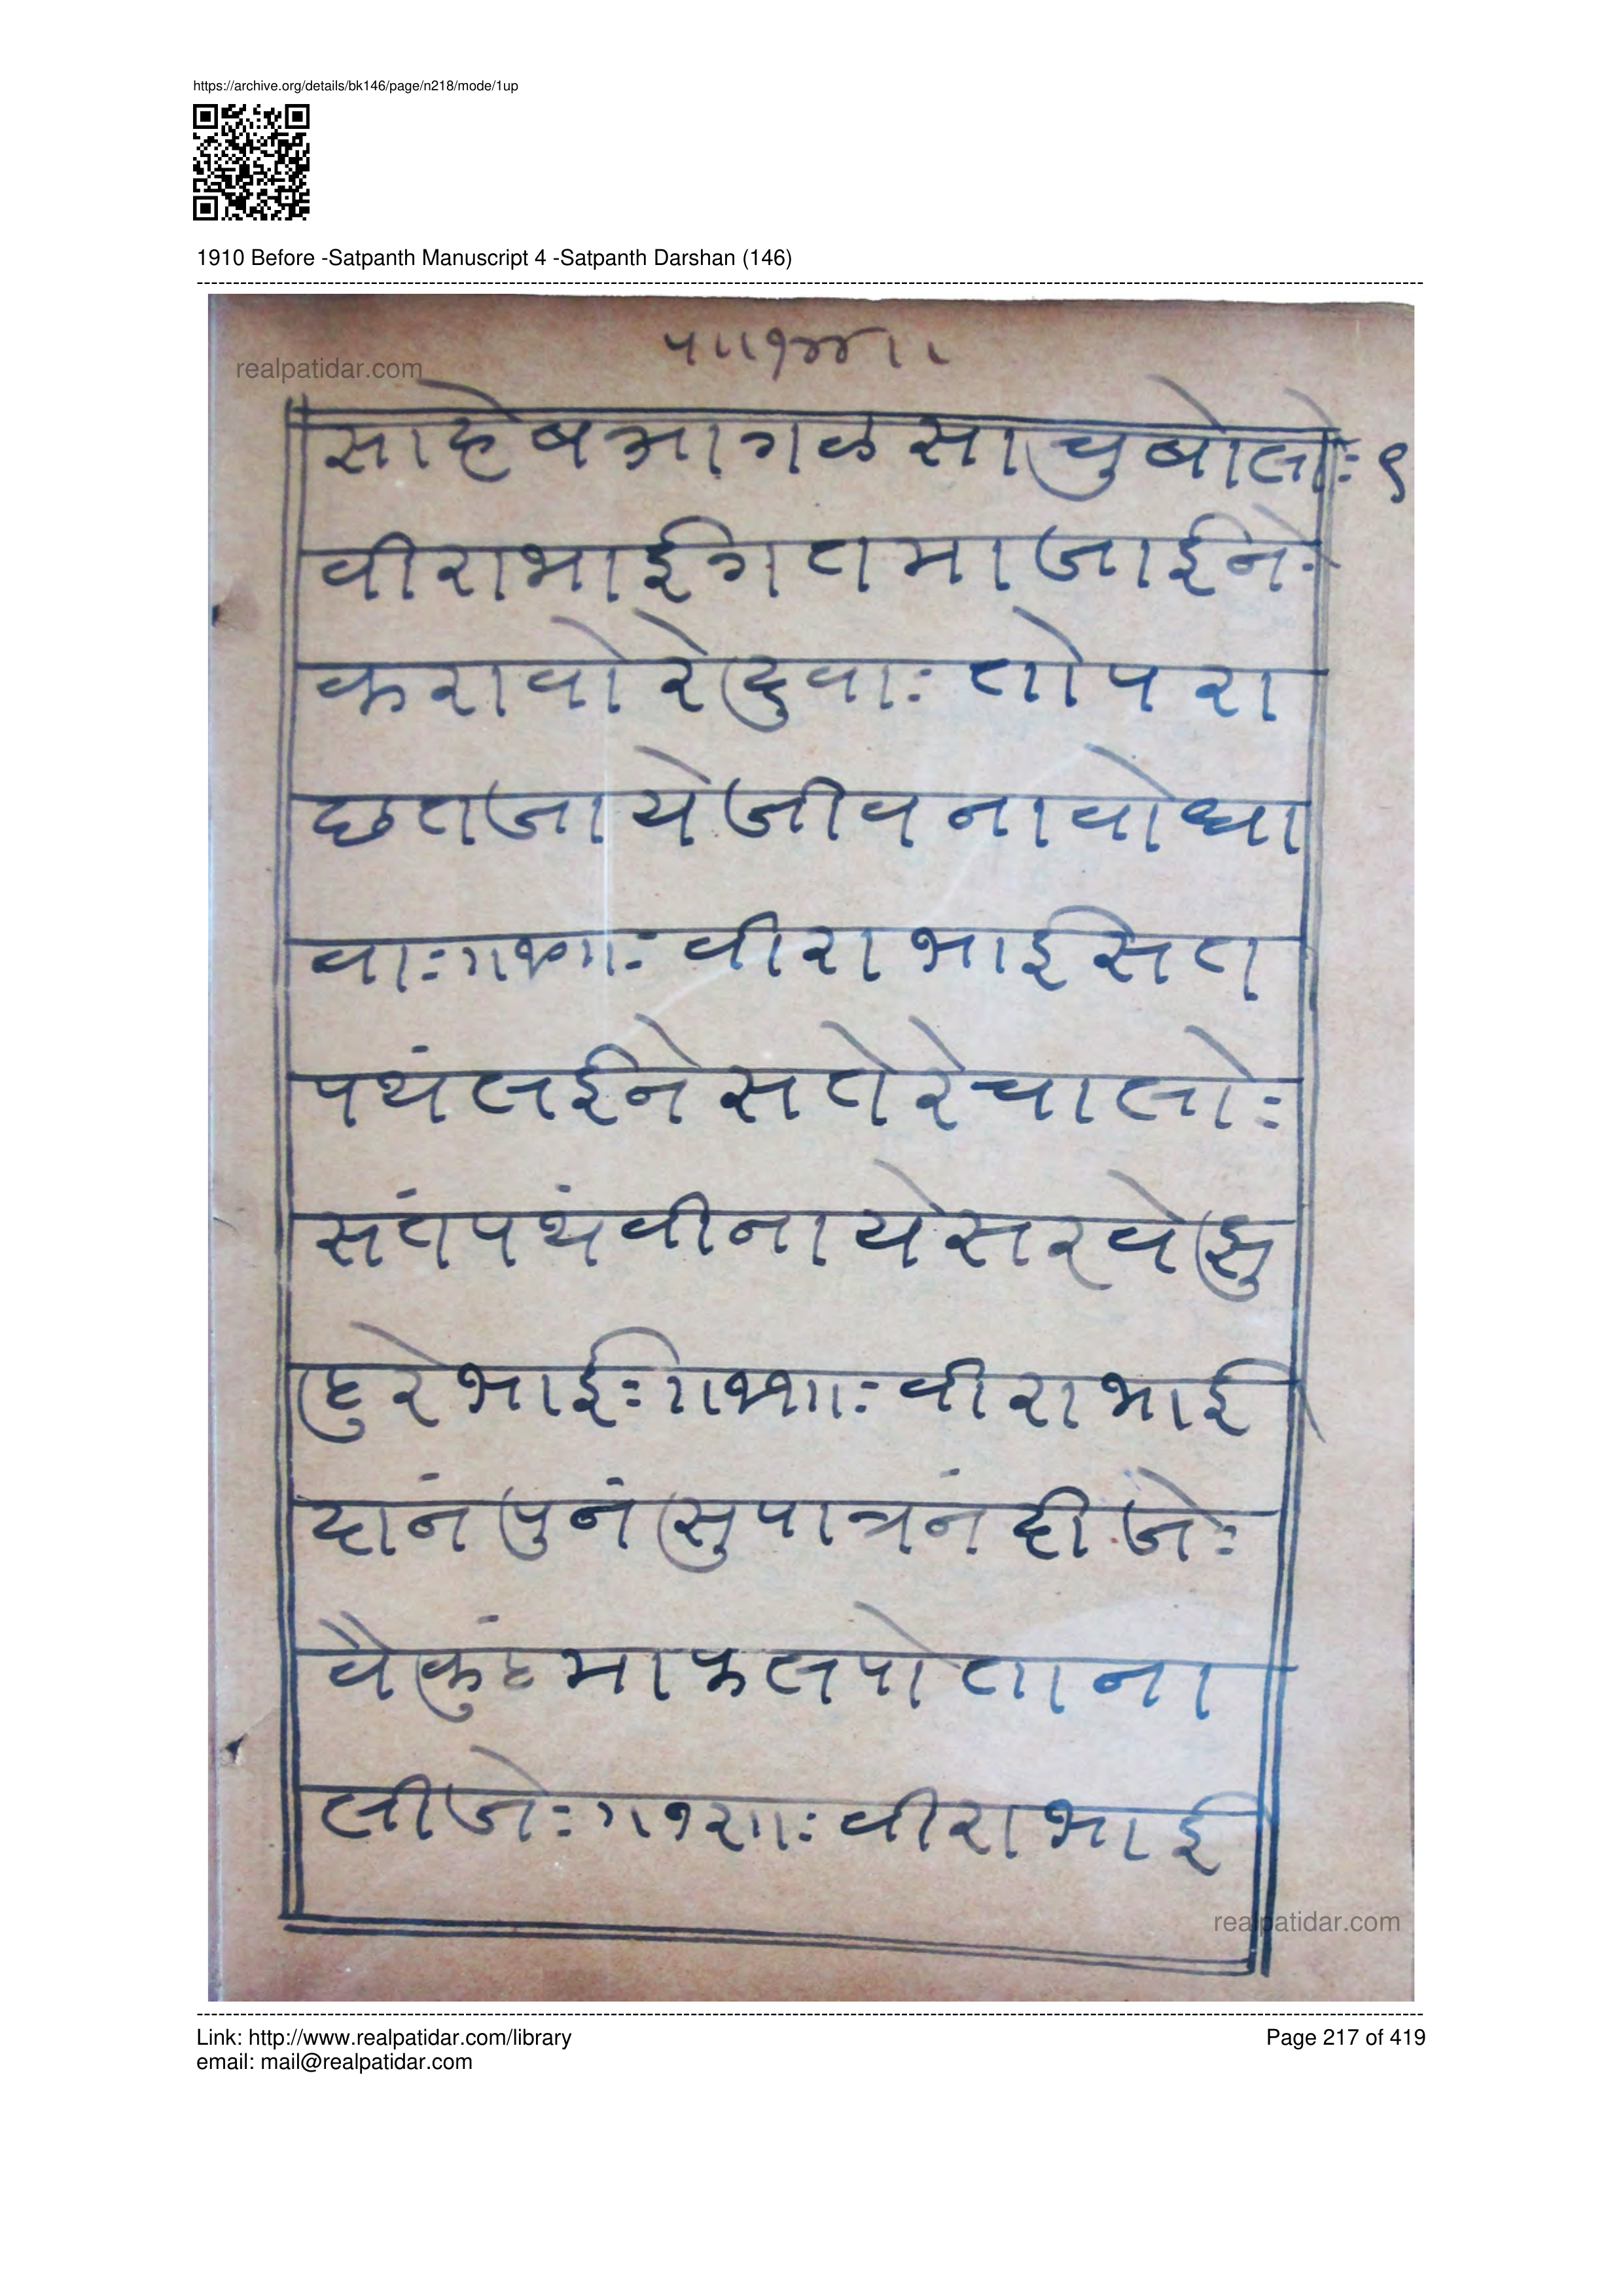 https://archive.org/details/bk146/page/n218/mode/1up
1910 Before -Satpanth Manuscript 4 -Satpanth Darshan (146)
प॥१४४॥
realpatidar.com
साहेबआगळसाचुबोलोः ९
वीराभाईगतमाजाईनेः
करावोरेदुवाः तोपरा
छतजायेजीवनावोधा
वाः॥१०॥ः वीराभाईसत
पथंलईनेसतेरेचालोः
संतपथंवीनायेसरवेझु
ठुरेभाईः॥११॥ः वीराभाई
दानंपुनंसुपात्रनंदीजेः
वैकुंठमाफलपोताना
लीजेः॥१२॥ः वीराभाई
realpatidar.com
Link: http://www.realpatidar.com/library
Page 217 of 419
email: mail@realpatidar.com